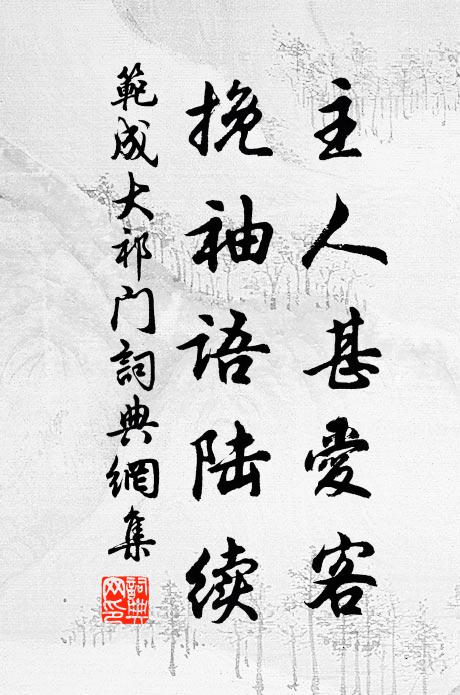 主人甚爱客
挽袖语陆续
範成大祁门詞典網集
詞典网印